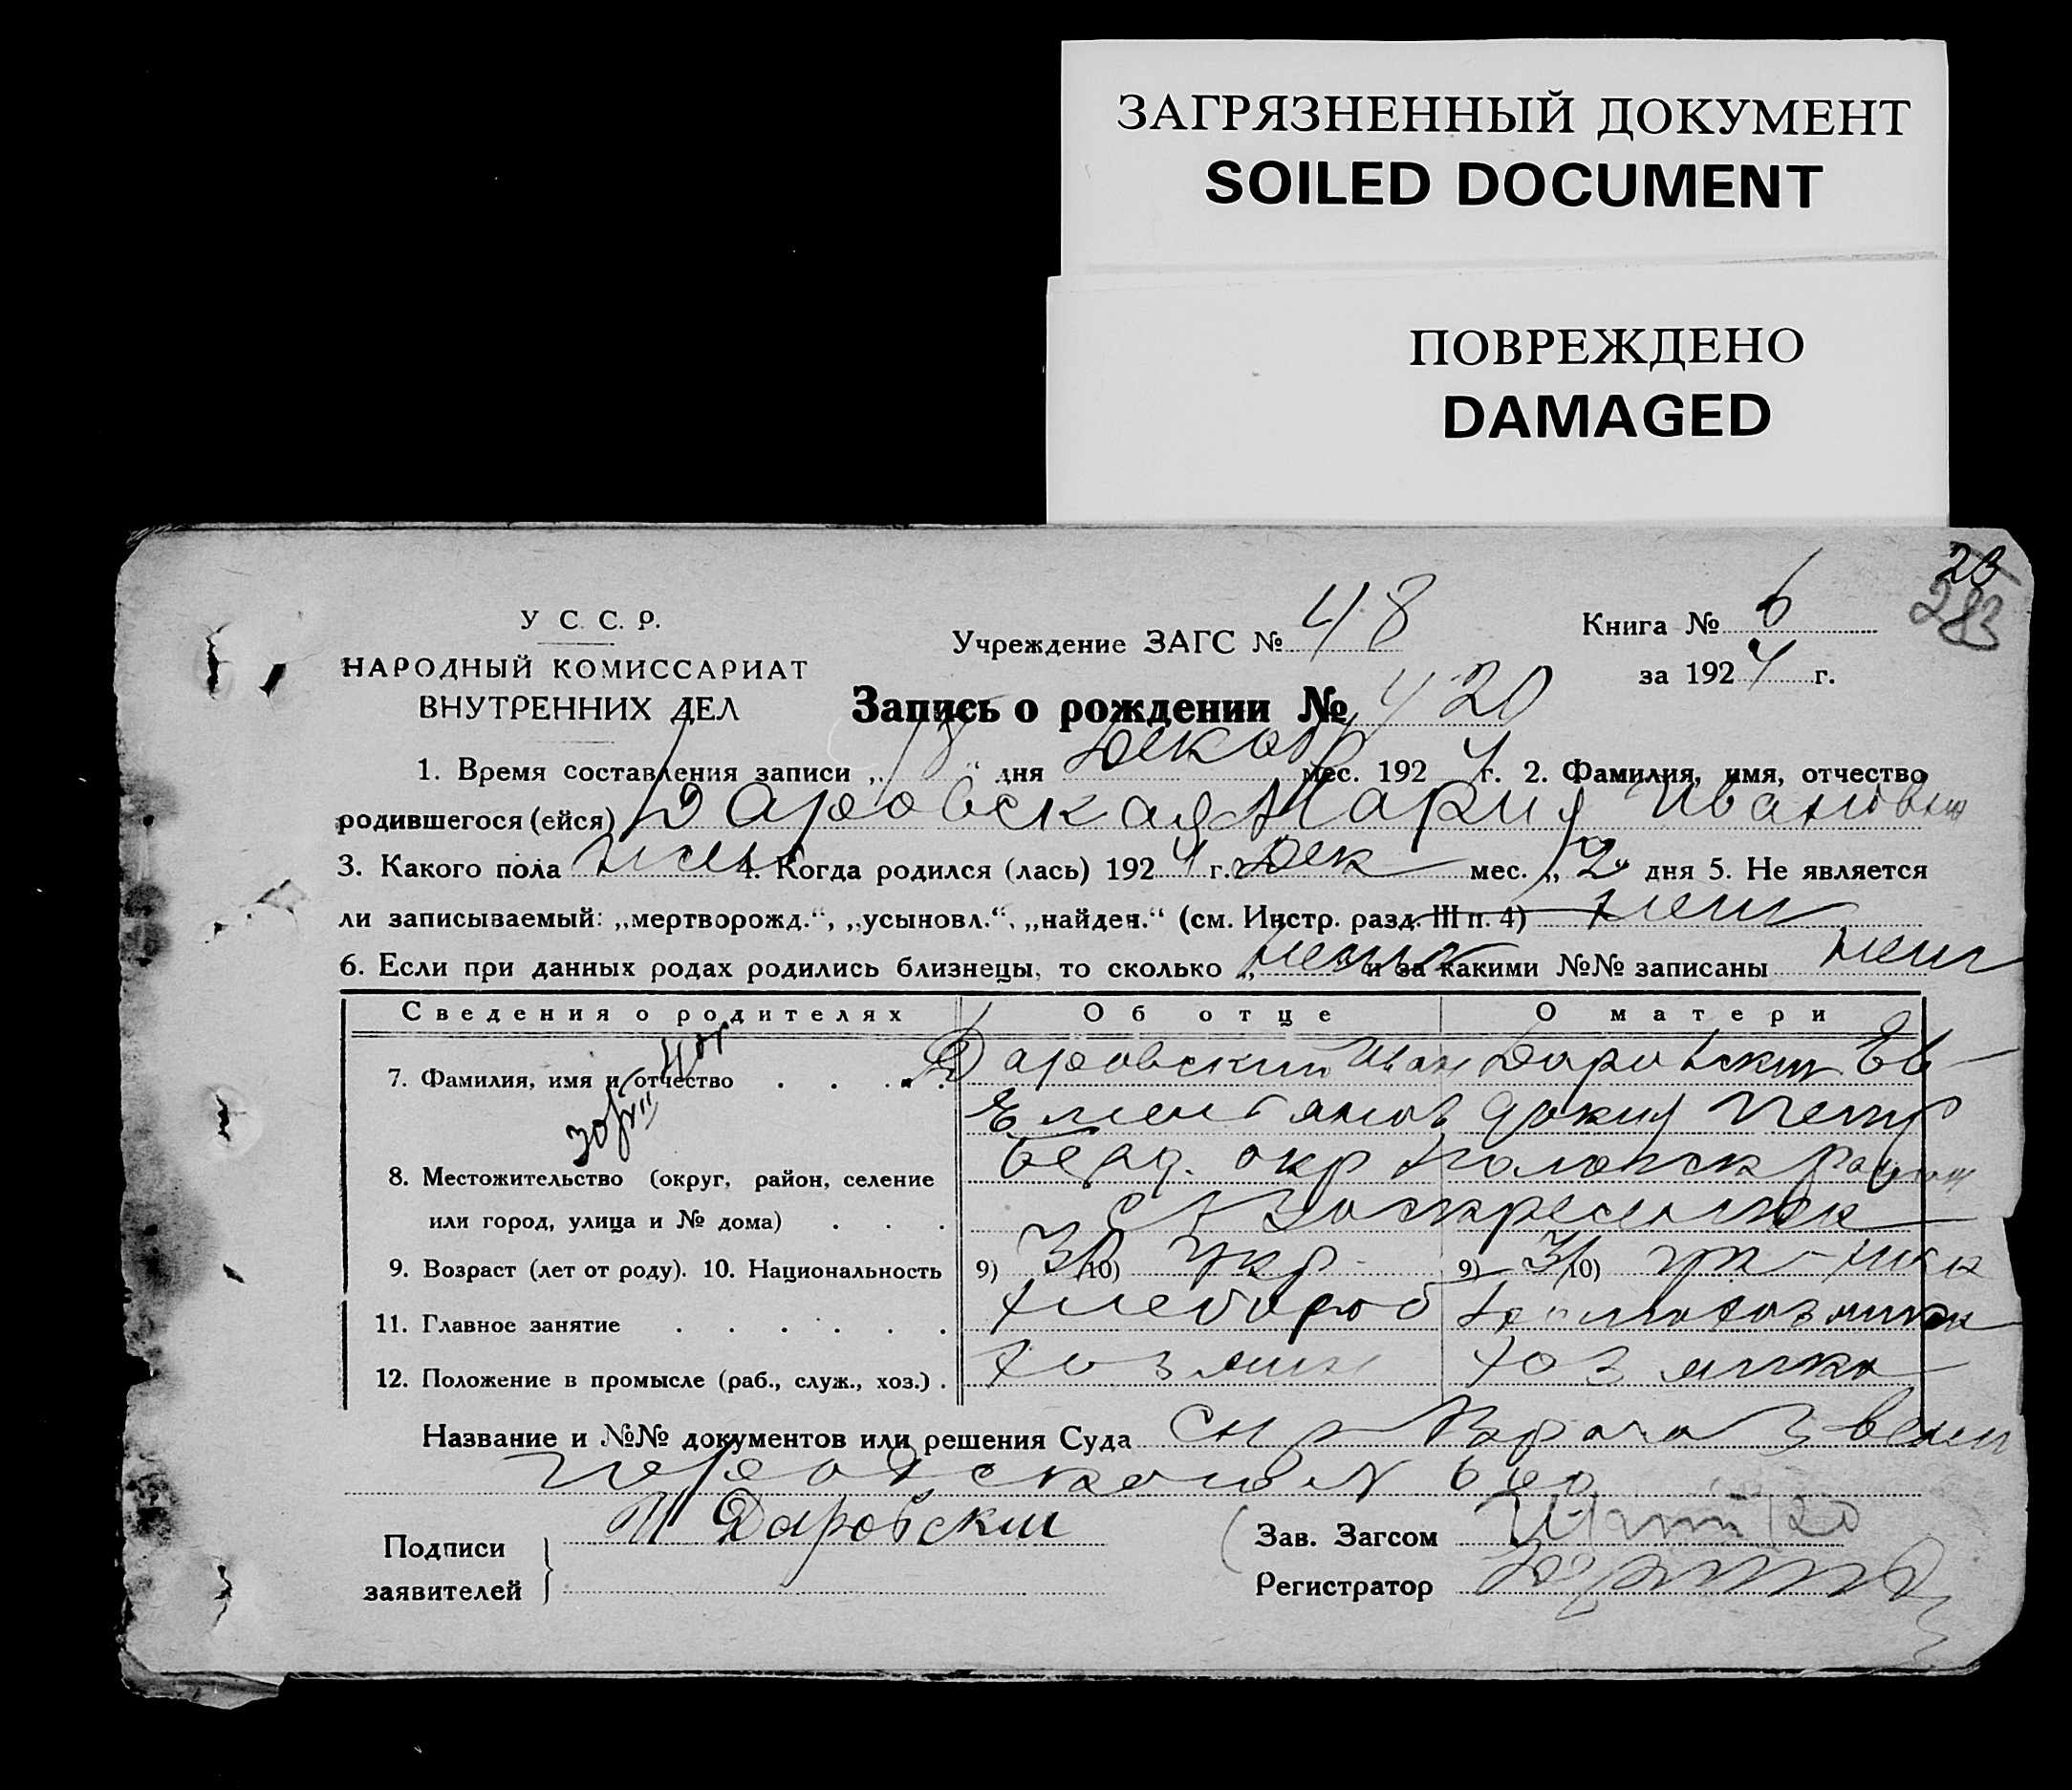 ЗАГРЯЗНЕННЫЙ ДОКУМЕНТ
SOILED DOCUMENT
ПОВРЕЖДЕНО
DAMAGED
23
283
У С. С. Р.
НАРОДНЫЙ КОМИССАРИАТ
ВНУТРЕННИХ ДЕЛ
Учреждение ЗАГС № 48
Книга № 6
за 1924 г.
Запись о рождении № 420
1. Время составления записи „18“ дня Декабр мес. 1924 г. 2. Фамилия, имя, отчество
родившегося (ейся) Даровская Мария Ивановна
3. Какого пола жен 4. Когда родился (лась) 1924 г. Дек мес. „2“ дня 5. Не является
ли записываемый: „мертворожд.“, „усыновл.“, „найден.“ (см. Инстр. разд. III п. 4) нет
6. Если при данных родах родились близнецы, то сколько „нет“ и за какими №№ записаны нет
Сведения о родителях Об отце О матери
7. Фамилия, имя и отчество Даровский Иван Даровская Ев
Емельянов докия Петр
8. Местожительство (округ, район, селение
или город, улица и № дома)
окр район
с Воскресенск
9. Возраст (лет от роду). 10. Национальность 9) 30 10) укр 9) 31 10) ук-инка
11. Главное занятие хлебороб
12. Положение в промысле (раб., служ., хоз.) хозяин хозяйка
Название и №№ документов или решения Суда
№
Подписи
заявителей
И Даровский
Зав. Загсом
Регистратор